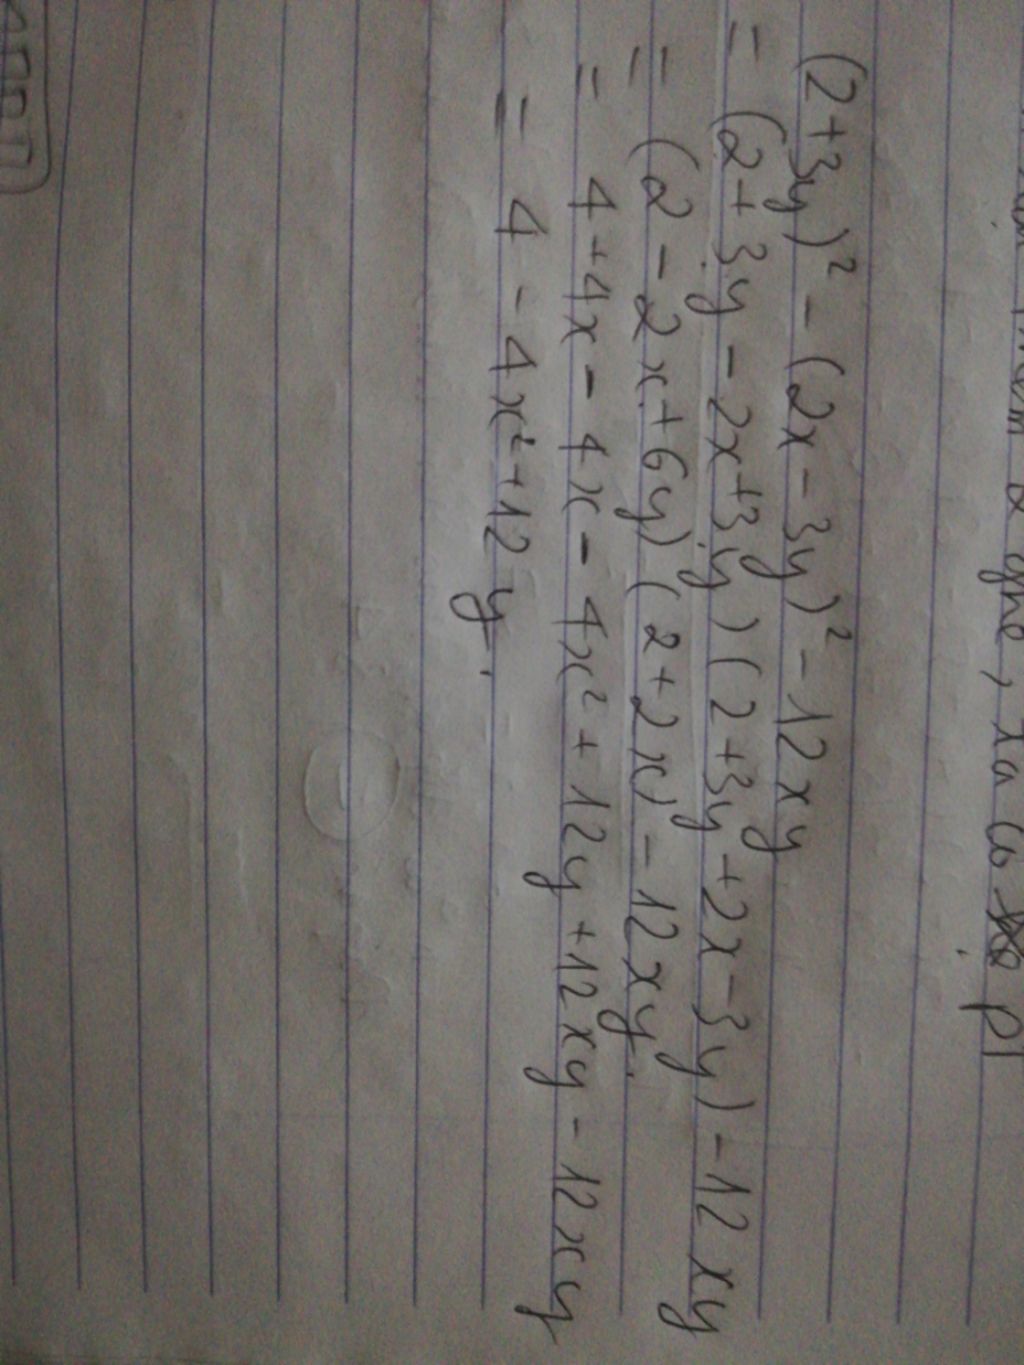 (2+3y)² - (2x - 3y)² - 12xy
= (2+3y - 2x+3y)(2+3y+2x-3y) - 12xy
= (2 - 2x+6y)(2+2x) - 12xy.
= 4+4x - 4x - 4x² + 12y+12xy - 12xy
= 4 - 4x²+12y.